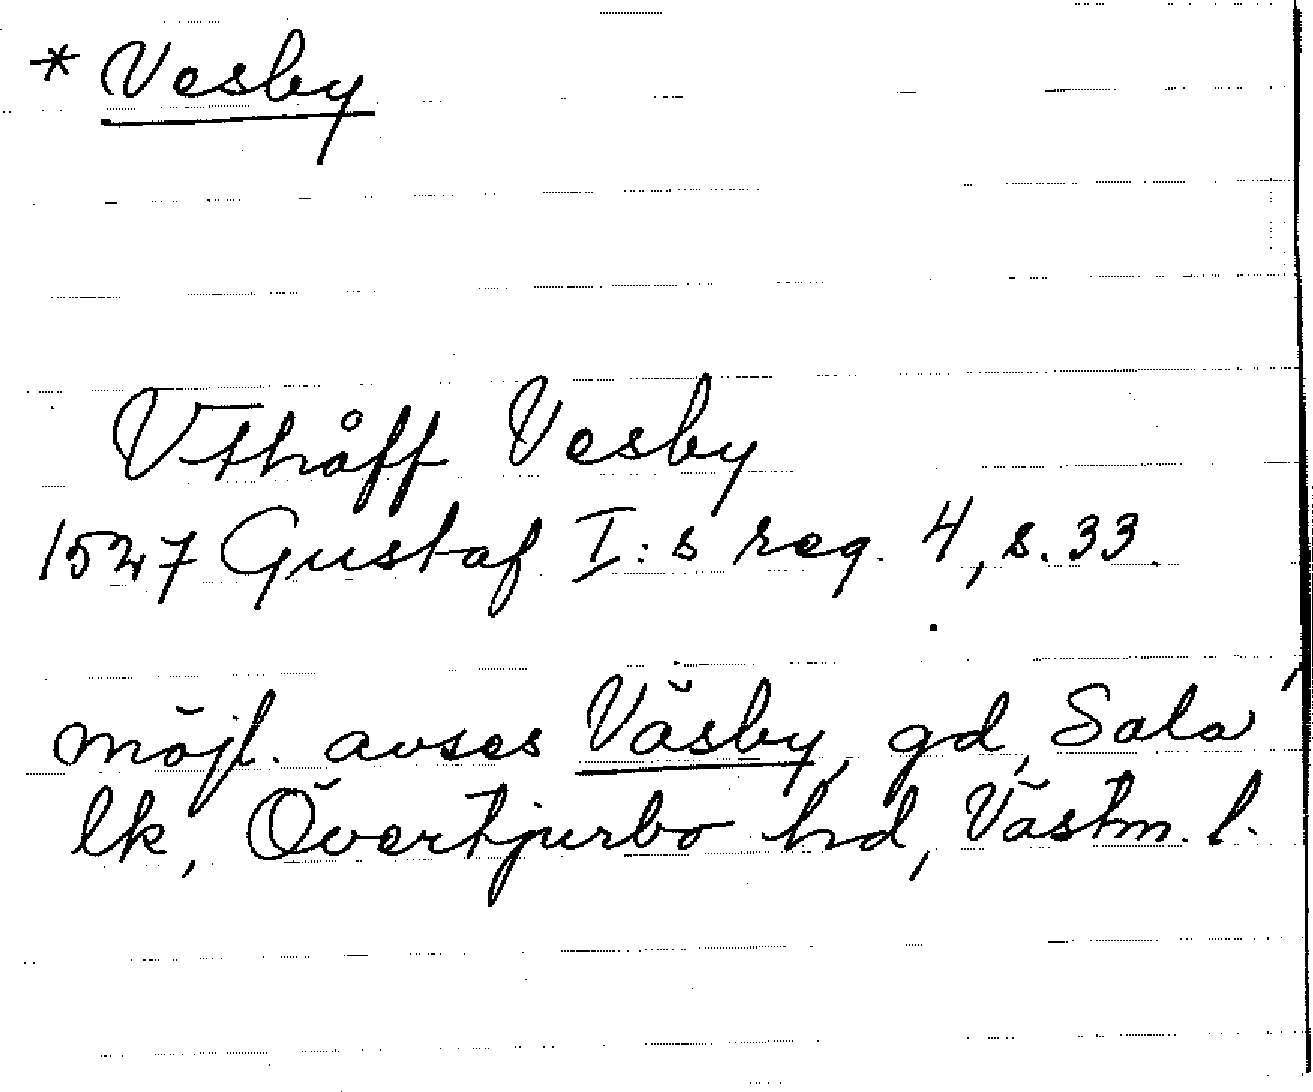 * Vesby
Vthåff Vesby
1527 Gustaf I:s reg. 4, s. 33.
möjl. avses Väsby, gd, Sala
lk, Övertjurbo hd, Västm. l.